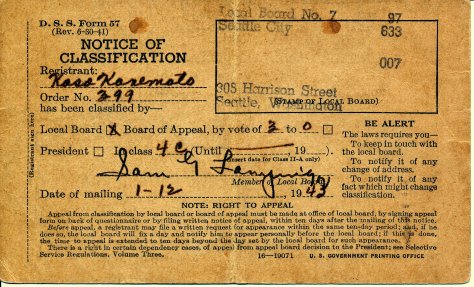 D. S. S. Form 57
(Rev. 6-30-41)
NOTICE OF
CLASSIFICATION
Registrant:
Order No. 399
has been classified by—
Local Board No. 7 97
Seattle City 633
007
305 Harrison Street
Seattle, Washington
(STAMP OF LOCAL BOARD)
Local Board X Board of Appeal, by vote of 3 to 0
President class 4C (Until 19 )
(Insert date for Class II-A only)
Sam G
Member of Local Board
Date of mailing 1-12, 1943
(Registrant must sign here)
BE ALERT
The laws requires you—
To keep in touch with
the local board.
To notify it of any
change of address.
To notify it of any
fact which might change
classification.
NOTE: RIGHT TO APPEAL
Appeal from classification by local board or board of appeal must be made at office of local board, by signing appeal
form on back of questionnaire or by filing written notice of appeal, within ten days after the mailing of this notice.
Before appeal, a registrant may file a written request for appearance within the same ten-day period; and, if he
does so, the local board will fix a day and notify him to appear personally before the local board; if this is done,
the time to appeal is extended to ten days beyond the day set by the local board for such appearance.
There is a right in certain dependency cases, of appeal from appeal board decision to the President; see Selective
Service Regulations, Volume Three.
16—19071 U. S. GOVERNMENT PRINTING OFFICE